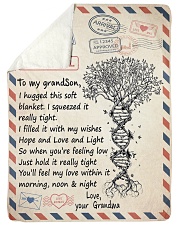 ARRIVED
12.12345
APPROVED
To my grandSon,
I hugged this soft
blanket. I squeezed it
really tight.
I filled it with my wishes
Hope and Love and Light
So when you're feeling low
Just hold it really tight
You'll feel my love within it
morning, noon & night
Love,
your Grandma